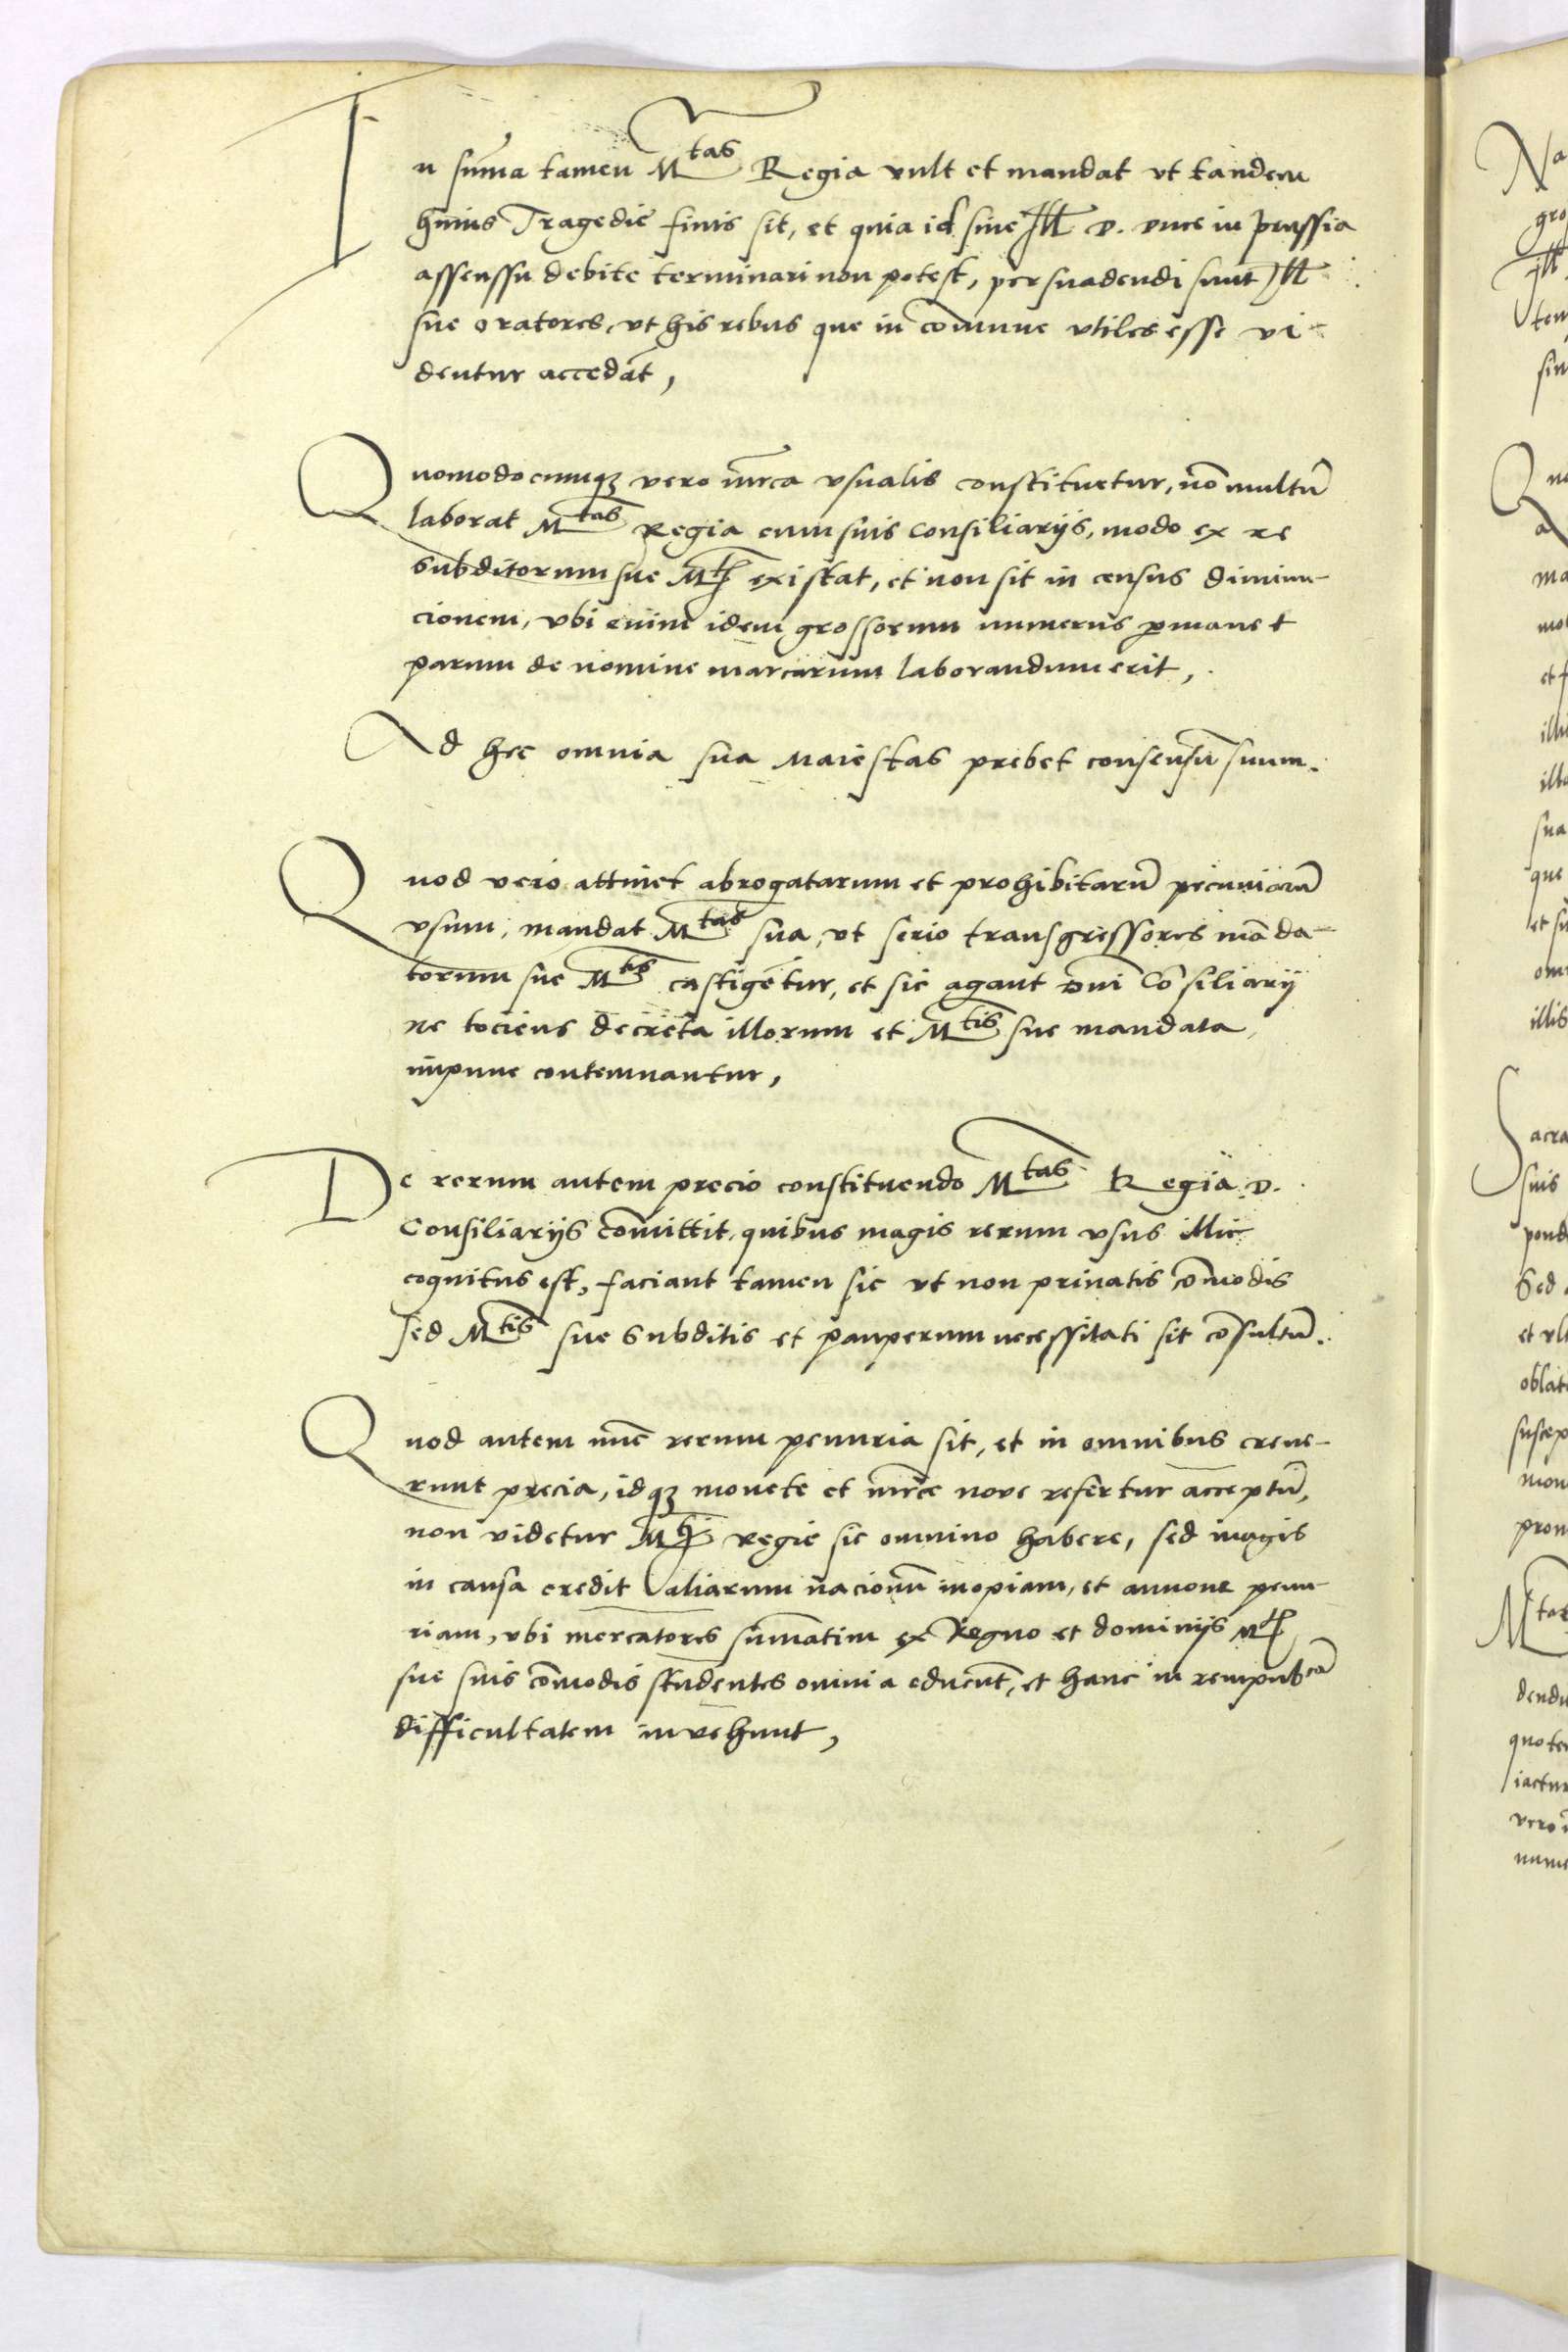 In sum̄a tamen Mtas Regia vult et mandat vt tandem
huius Tragedie finis sit, et quia id sine Ill D. Duce in prussia
assenssu debite terminari non potest, persuadendi sunt Ill
sue oratores, vt his rebus que in com̄une vtiles esse vi-
dentur accedāt,
Quomodocumqꝫ vero mrca vsualis constituetur, nō multū
laborat Mtas Regia cum suis Consiliarijs, modo ex re
subditorum sue Mtis existat, et non sit in census diminu-
cionem, vbi enim idem grossorum numerus ꝑmanet
parum de nomine marcarum laborandum erit,
Ad hec omnia sua Maiestas prebet consensū suum.
Quod vero attinet abrogatarum et prohibitarū pecuniarū
vsum, mandat Mtas sua, vt serio transgressores māda-
torum sue Mtis castigētur, et sic agant Dni Cōsiliarij
ne tociens decreta illorum et Mtis sue mandata
impune contemnantur,
De rerum autem precio constituendo Mtas Regia D.
Consiliarijs com̄ittit, quibus magis rerum vsus illic
cognitus est, faciant tamen sic vt non priuatis com̄odis
sed Mtis sue subditis et pauperum necessitati sit cōsultū.
Quod autem nūc rerum penuria sit, et in omnibus creue-
runt precia, idqꝫ monete et mrce noue refertur acceptū,
non videtur Mti Regie sic omnino habere, sed magis
in causa credit aliarum nacionū inopiam, et annone penu-
riam, vbi mercatores sum̄atim ex Regno et dominijs Mtis
sue suis com̄odis studentes omnia educūt, et hanc in rempubcā
difficultatem invehunt,